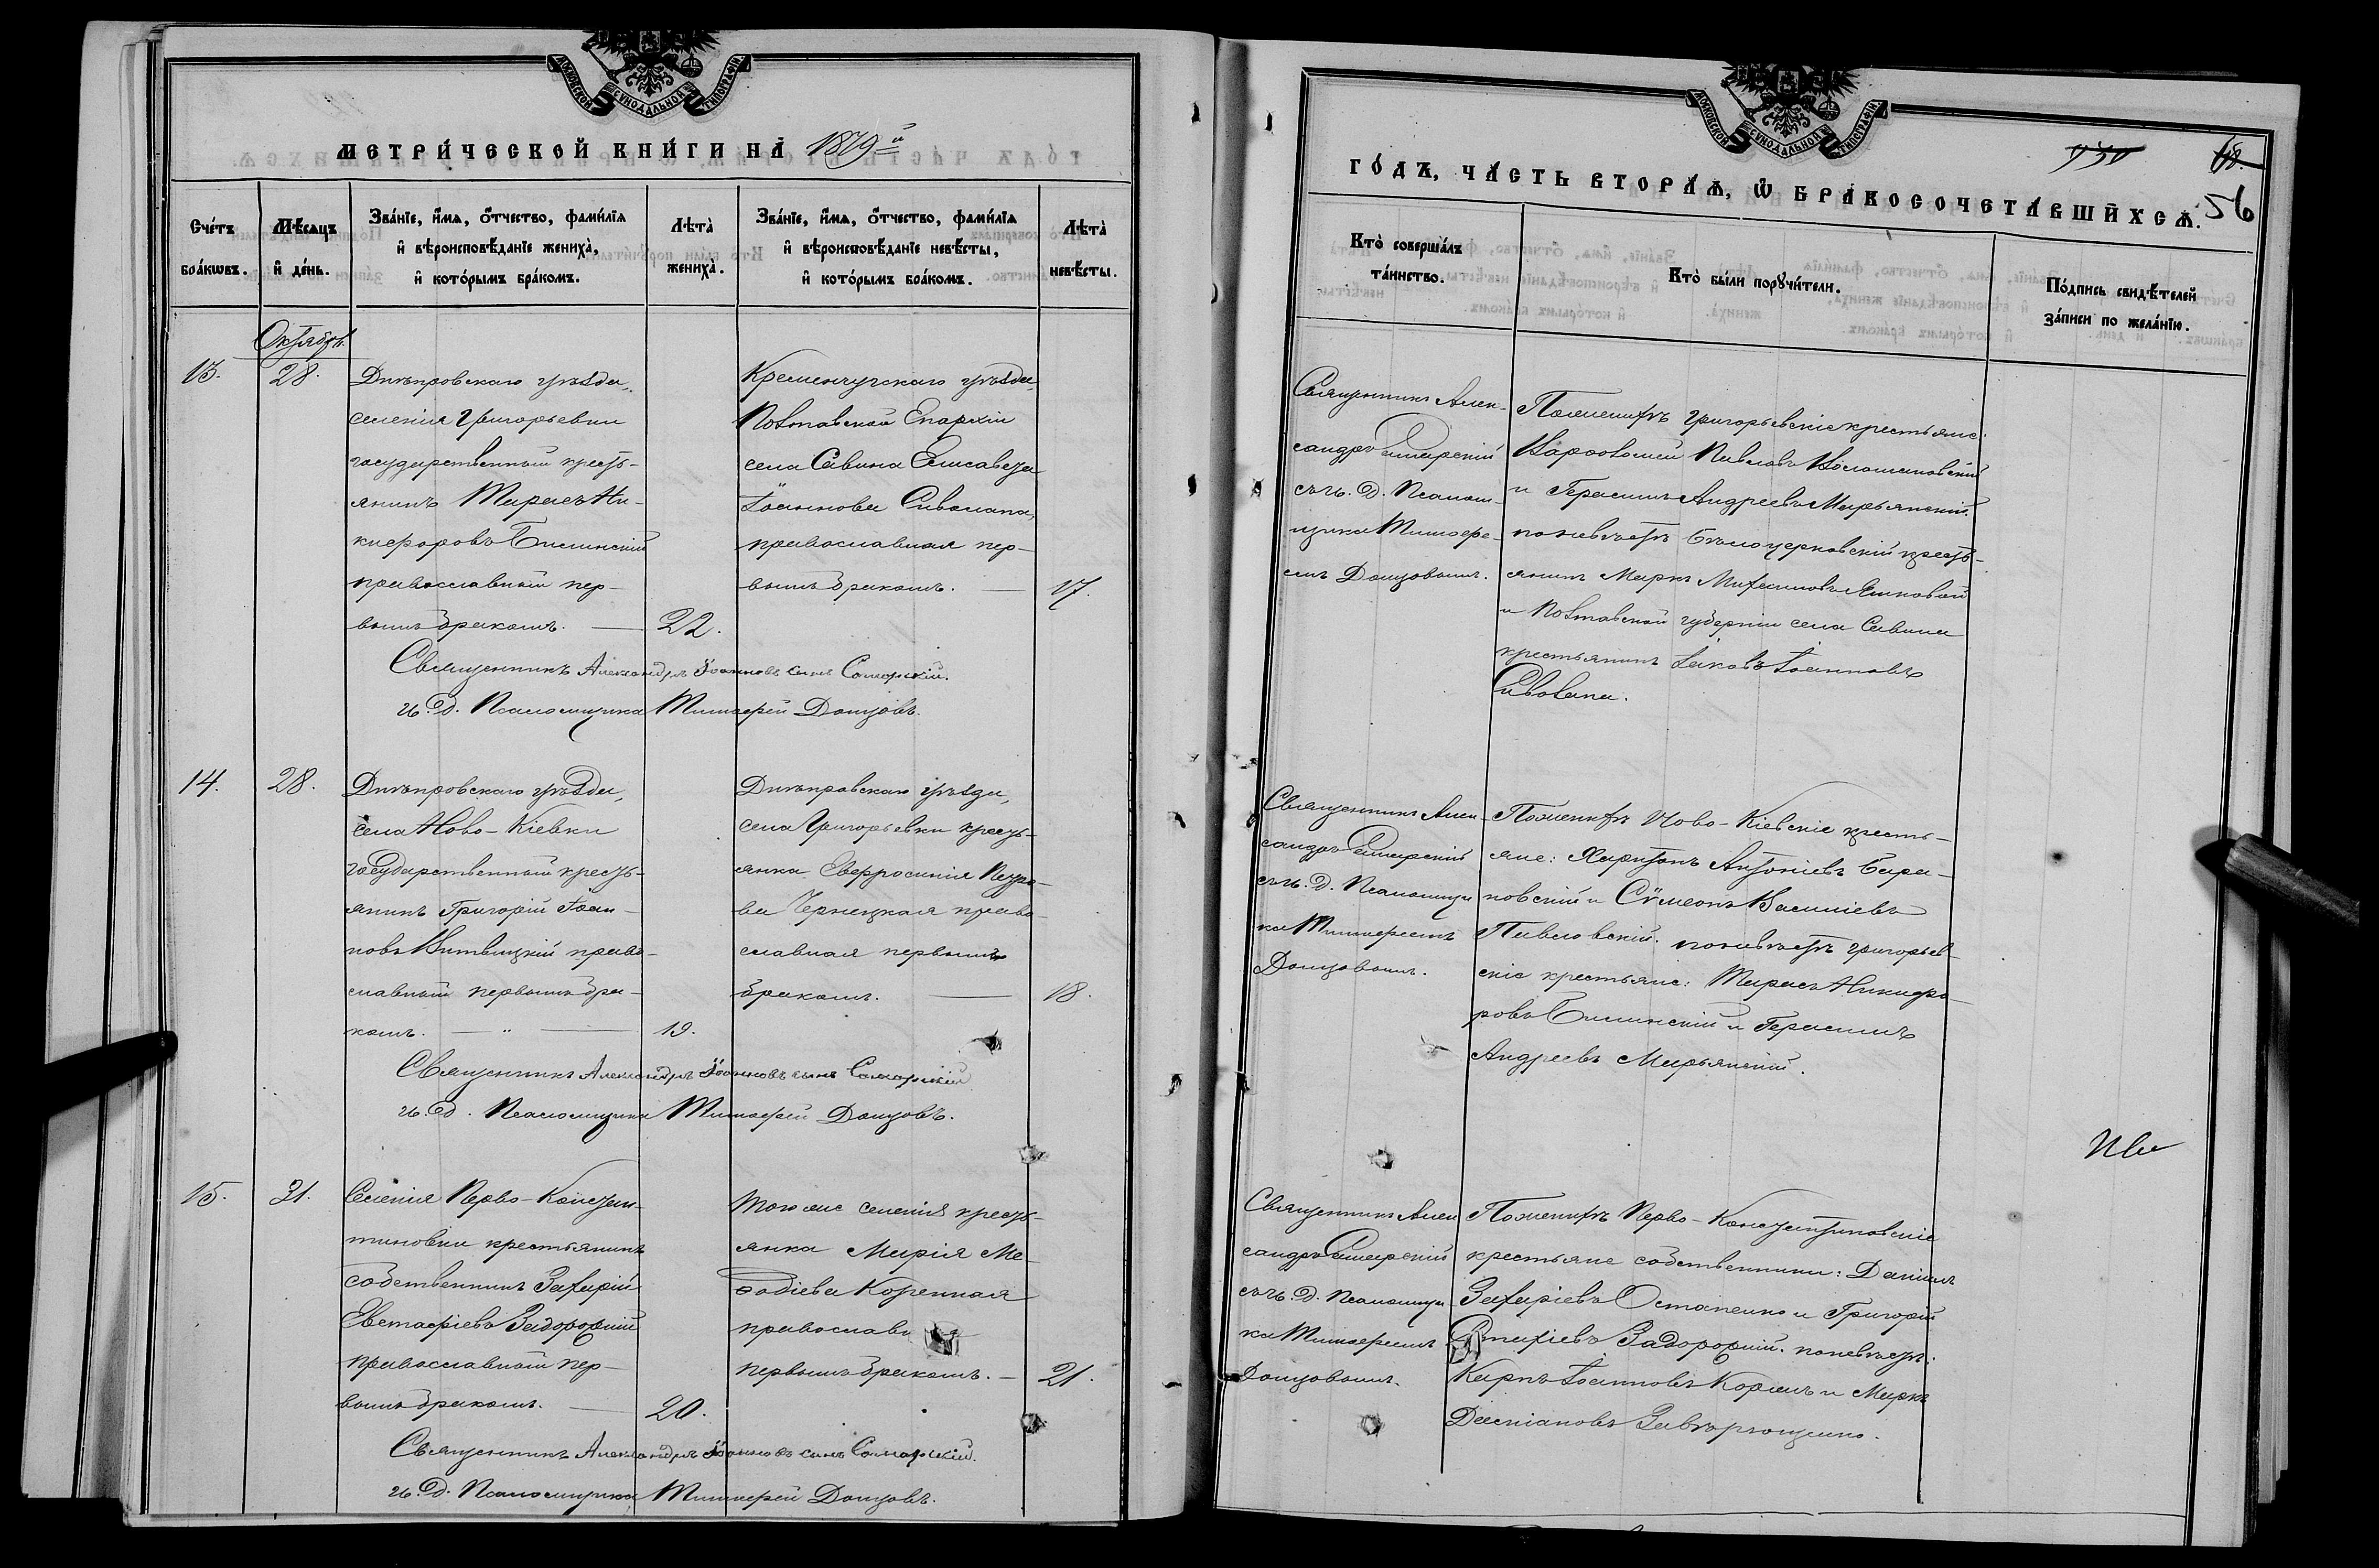 МОСКОВСКОЙ СѴНОДАЛЬНОЙ ТИПОГРАФІИ
МЕТРИ́ЧЕСКОЙ КНИ́ГИ НА̀ 1879й
Сче́тъ бра́кѡвъ.
Мѣ́сѧцъ и҆ де́нь.
Зва́нїе, и҆́мѧ, ѻ҆́тчество, фами́лїѧ
и҆ вѣроисповѣ́данїе жениха̀,
и҆ кото́рымъ бра́комъ.
Лѣта̀ жениха̀.
Зва́нїе, и҆́мѧ, ѻ҆́тчество, фами́лїѧ
и҆ вѣроисповѣ́данїе невѣ́сты,
и҆ кото́рымъ бра́комъ.
Лѣта̀ невѣ́сты.
Октябрь.
13.
28.
Днѣпровскаго уѣзда,
селенія Григорьевки
государственный кресть-
янинъ Тарасъ Ни-
кифоровъ Билинскій
православный пер-
вымъ бракомъ.
22.
Кременчугскаго уѣзда
Полтавской Епархіи
села Савина Елисавета
Іоаннова Сиволапа,
православная пер-
вымъ бракомъ.
17.
Священникъ Александръ Іоанновъ сынъ Самарскій.
И. д. Псаломщика Тимофей Донцовъ.
14.
28.
Днѣпровскаго уѣзда,
села Ново-Кіевки
государственный кресть-
янинъ Григорій Іоан-
новъ Витвицкій право-
славный первымъ бра-
комъ. — „ —
19.
Днѣпровскаго уѣзда,
села Григорьевки кресть-
янка Евфросинія Петро-
ва Чернецкая право-
славная первымъ
бракомъ.
18.
Священникъ Александръ Іоанновъ сынъ Самарскій
И. д. Псаломщика Тимофей Донцовъ.
15.
31.
Селенія Перво-Констан-
тиновки крестьянинъ
собственникъ Захарій
Евстафіевъ Задорожній
православный пер-
вымъ бракомъ.
20.
Того же селенія кресть-
янка Марія Ме-
ѳодіева Коренная
православная
первымъ бракомъ. —
21.
Священникъ Александръ Іоанновъ сынъ Самарскій.
И. д. Псаломщика Тимофей Донцовъ.
МОСКОВСКОЙ СѴНОДАЛЬНОЙ ТИПОГРАФІИ
56
ГО́ДЪ, ЧА́СТЬ ВТОРА́Ѧ, Ѽ БРАКОСОЧЕТА́ВШИХСѦ.
Кто̀ соверша́лъ
та́инство.
Кто̀ были порꙋчи́тели.
По́дпись свидѣ́телей
за́писи по жела́нїю.
Священникъ Алек-
сандръ Самарскій
съ и. д. Псалом-
щика Тимофе-
емъ Донцовымъ.
По женихѣ Григорьевскіе крестьяне:
Варѳоломей Павловъ Волошановскій
и Герасимъ Андреевъ Марьянскій.
по невѣстѣ Бѣлоцерковскій кресть-
янинъ Маркъ Михаиловъ Яшковой
и Полтавской губерніи села Савина
крестьянинъ Іаковъ Іоанновъ
Сиволапа.
Священникъ Алек-
сандръ Самарскій
съ и. д. Псаломщи
ка Тимофеемъ
Донцовымъ.
По женихѣ Ново-Кіевскіе кресть-
яне: Харитонъ Антоніевъ Бара-
новскій и Сѵмеонъ Василіевъ
Павловскій. по невѣстѣ Григорьев-
скіе крестьяне: Тарасъ Никифо-
ровъ Билинскій и Герасимъ
Андреевъ Марьянскій.
Священникъ Алек
сандръ Самарскій
съ и. д. Псаломщи
ка Тимофеемъ
Донцовымъ.
По женихѣ Перво-Константиновскіе
крестьяне собственники: Даніилъ
Захаріевъ Остапенко и Григорій
Стахіевъ Задорожній. по невѣстѣ:
Карпъ Іоанновъ Корженъ и Маркъ
Даміановъ Завѣрющенко.